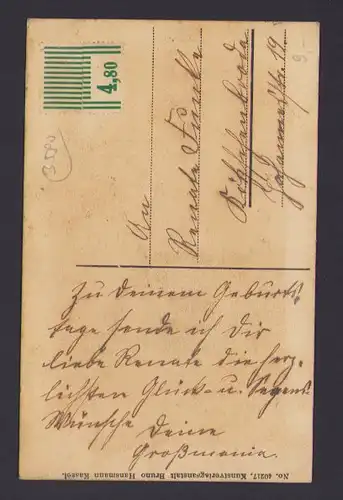 4,80
9,-
3580
An
Renate Funke
Kötzschenbroda
Johannesstr. 19.
Zu Deinem Geburts-
tage sende ich Dir
liebe Renate die herz-
lichsten Glück- u. Segens
Wünsche Deine
Großmama.
No. 40217. Kunstverlagsanstalt Bruno Hansmann Kassel.